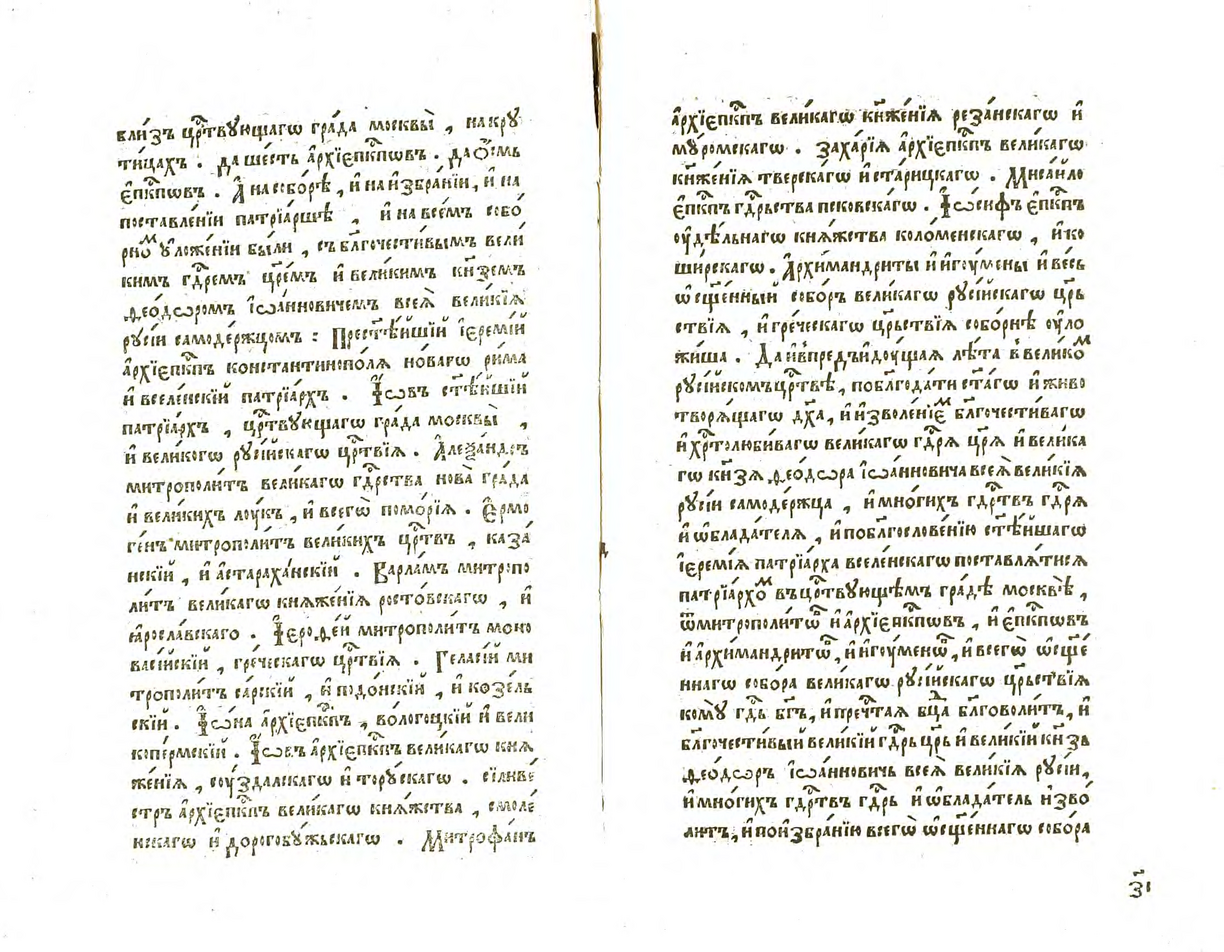 бли́зъ црⷭ҇твꙋющагѡ гра́да москвы̀ , на крꙋ
ти́цахъ . да шесть а҆рхїепⷭ҇кпѡвъ . да ѻ҆́смь
є҆пⷭ҇кпѡвъ . А҆ на собо́рѣ , и҆ на и҆збра́нїи , и҆ на
поставле́нїи патрїа́ршѣ , и҆ на все́мъ собо́
рноⷨ ᲂу҆ложе́нїи бы́ли , съ бл҃гочести́вымъ вели́
кимъ гдⷭ҇ремъ цр҃е́мъ и҆ вели́кимъ кн҃земъ
ѳео́дѡромъ і҆ѡа́нновичемъ всеѧ̀ вели́кїѧ
рꙋсі́и самоде́ржцомъ : Прест҃ѣ́йшїй і҆еремі́й
а҆рхїепⷭ҇кпъ константинопо́лѧ но́вагѡ ри́ма
и҆ вселе́нскїй патрїа́рхъ . І҆́ѡвъ ст҃ѣ́йшїй
патрїа́рхъ , црⷭ҇твꙋющагѡ гра́да москвы̀ ,
и҆ вели́когѡ рꙋсі́йскагѡ црⷭ҇твїѧ . А҆леѯа́ндръ
митрополи́тъ вели́кагѡ гдⷭ҇рства но́ва гра́да
и҆ вели́кихъ лꙋ́къ , и҆ всегѡ̀ помо́рїѧ . Є҆рмо
ге́нъ митрополи́тъ вели́кихъ црⷭ҇твъ , каза́
нскїй , и҆ а҆страха́нскїй . Варла́мъ митропо
ли́тъ вели́кагѡ кнѧже́нїѧ росто́вскагѡ , и҆
ꙗ҆росла́вскаго . І҆еро́ѳей митрополи́тъ моно
васі́йскїй , гре́ческагѡ црⷭ҇твїѧ . Гела́сїй ми
трополи́тъ са́рскїй , и҆ подо́нскїй , и҆ козе́ль
скїй . І҆ѡ́на а҆рхїепⷭ҇кпъ , волого́цкїй и҆ вели
копе́рмскїй . І҆́ѡвъ а҆рхїепⷭ҇кпъ вели́кагѡ кнѧ
же́нїѧ , сꙋ́здалскагѡ и҆ торꙋ́скагѡ . сїливе́
стръ а҆рхїепⷭ҇кпъ вели́кагѡ кнѧ́жства , смоле́
нскагѡ и҆ дорогобꙋ́жьскагѡ . Митрофа́нъ
а҆рхїепⷭ҇кпъ вели́кагѡ кн҃же́нїѧ реза́нскагѡ и҆
мꙋ́ромскагѡ . Заха́рїѧ а҆рхїепⷭ҇кпъ вели́кагѡ
кн҃же́нїѧ тве́рскагѡ и҆ ста́рицкагѡ . Мисаи́ло
є҆пⷭ҇кпъ гдⷭ҇рьства пско́вскагѡ . І҆ѡ́сифъ є҆пⷭ҇кпъ
ᲂу҆дѣ́льнагѡ кнѧ́жства коло́менскагѡ , и҆ ко
ши́рскагѡ . А҆рхимандри́ты и҆ и҆гꙋ́мены и҆ ве́сь
ѡ҆сщ҃е́нный собо́ръ вели́кагѡ рꙋсі́йскагѡ цр҃ь
ствїѧ , и҆ гре́ческагѡ цр҃ьствїѧ собо́рнѣ ᲂу҆ло
жи́ша . Да и҆ впре́дъ и҆дꙋ́щаѧ лѣ́та в вели́коⷨ
рꙋсі́йскомъ црⷭ҇твѣ , по бл҃года́ти ст҃а́гѡ и҆ живо
творѧ́щагѡ дх҃а , и҆ и҆зволе́нїеⷨ бл҃гочести́вагѡ
и҆ хрⷭ҇толюби́вагѡ вели́кагѡ гдⷭ҇рѧ цр҃ѧ̀ и҆ вели́ка
гѡ кн҃зѧ ѳео́дѡра і҆ѡа́нновича всеѧ̀ вели́кїѧ
рꙋсі́и самоде́ржца , и҆ мно́гихъ гдⷭ҇рствъ гдⷭ҇рѧ
и҆ ѡ҆блада́телѧ , и҆ по бл҃гослове́нїю ст҃ѣ́йшагѡ
і҆еремі́ѧ патрїа́рха вселе́нскагѡ поставлѧ́тисѧ
патрїа́рхоⷨ въ црⷭ҇твꙋющѣмъ гра́дѣ москвѣ̀ ,
ѿ митрополи́тѡⷡ и҆ а҆рхїепⷭ҇кпѡвъ , и҆ є҆пⷭ҇кпѡвъ
и҆ а҆рхимандри́тѡⷡ , и҆ и҆гꙋ́менѡⷡ , и҆ всегѡ̀ ѡ҆сщ҃е́
ннагѡ собо́ра вели́кагѡ рꙋсі́йскагѡ цр҃ьствїѧ
комꙋ̀ гдⷭ҇ь бг҃ъ , и҆ преч҃таѧ бц҃а бл҃говоли́тъ , и҆
бл҃гочести́вый вели́кїй гдⷭ҇рь цр҃ь и҆ вели́кїй кн҃зь
ѳео́дѡръ і҆ѡа́нновичь всеѧ̀ вели́кїѧ рꙋсі́и ,
и҆ мно́гихъ гдⷭ҇рствъ гдⷭ҇рь и҆ ѡ҆блада́тель и҆зво́
литъ , и҆ по и҆збра́нїю всегѡ̀ ѡ҆сщ҃е́ннагѡ собо́ра
з҃і